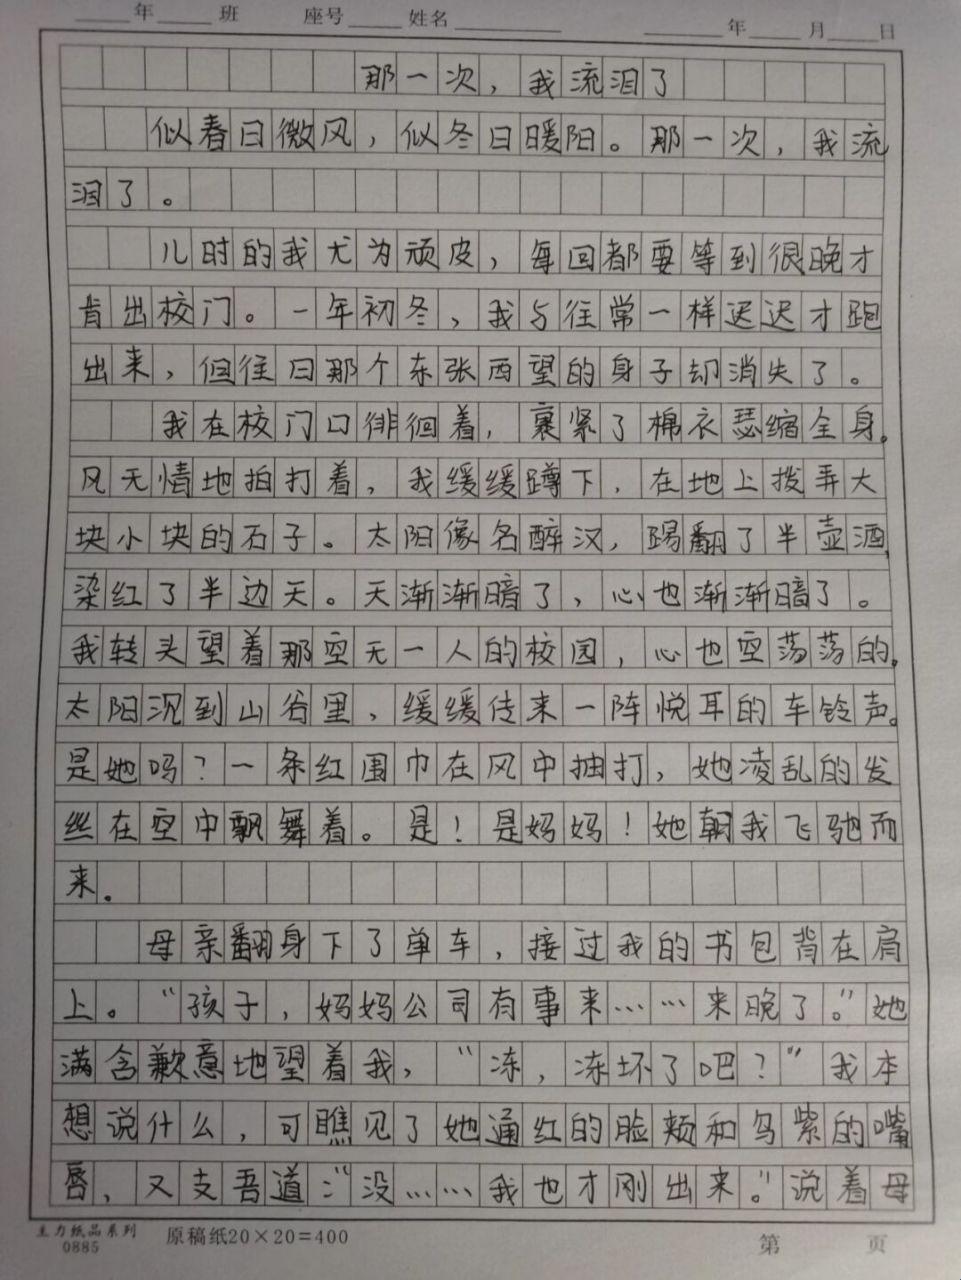 年 班 座号 姓名 年 月 日
那一次，我流泪了
似春日微风，似冬日暖阳。那一次，我流
泪了。
儿时的我尤为顽皮，每回都要等到很晚才
肯出校门。一年初冬，我与往常一样迟迟才跑
出来，但往日那个东张西望的身子却消失了。
我在校门口徘徊着，裹紧了棉衣瑟缩全身。
风无情地拍打着，我缓缓蹲下，在地上拨弄大
块小块的石子。太阳像名醉汉，踢翻了半壶酒，
染红了半边天。天渐渐暗了，心也渐渐暗了。
我转头望着那空无一人的校园，心也空荡荡的。
太阳沉到山谷里，缓缓传来一阵悦耳的车铃声。
是她吗？一条红围巾在风中抽打，她凌乱的发
丝在空中飘舞着。是！是妈妈！她朝我飞驰而
来。
母亲翻身下了单车，接过我的书包背在肩
上。“孩子，妈妈公司有事来……来晚了。”她
满含歉意地望着我，“冻，冻坏了吧？”我本
想说什么，可瞧见了她通红的脸颊和乌紫的嘴
唇，又支吾道：“没……我也才刚出来。”说着母
主力纸品系列
0885
原稿纸20×20=400
第 页